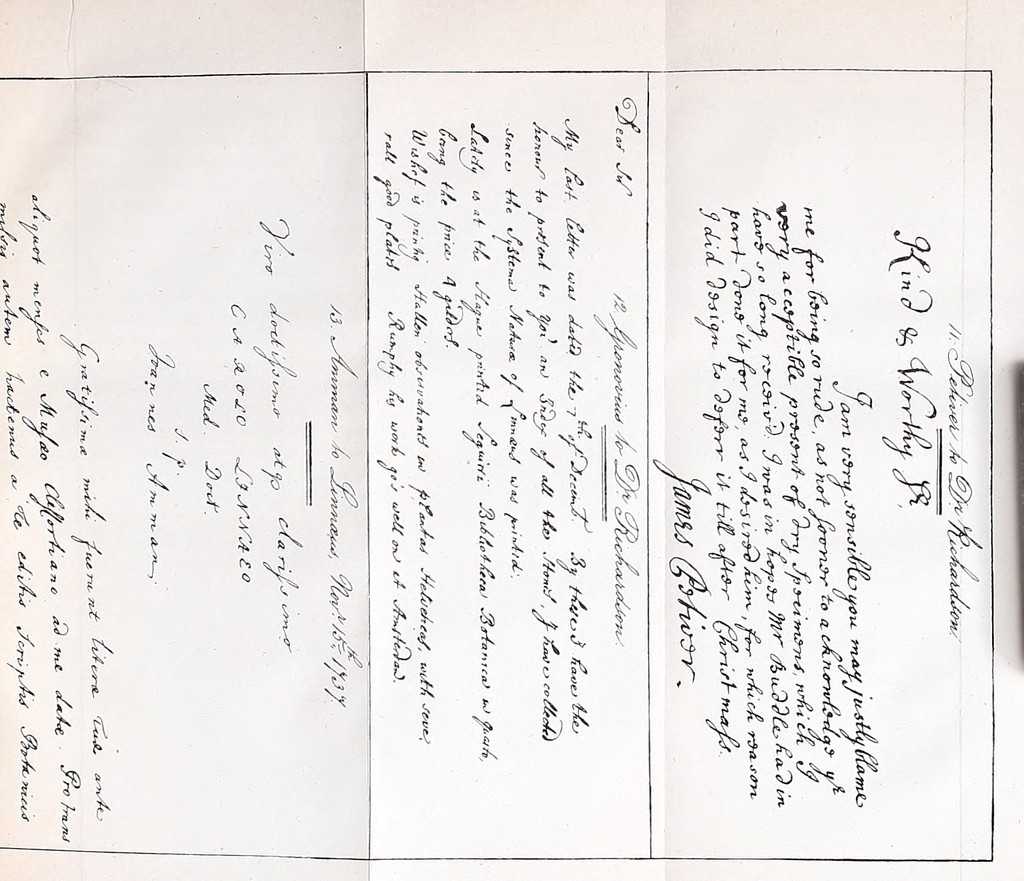 11. Petiver to Dr Richardson.
Kind & Worthy Sr.
I am very sensible you may justly blame
me for being so rude, as not sooner to acknowledge yr
very acceptible present of dry Specimens, which I
have so long receivd. I was in hopes Mr Buddle had in
part done it for me, as I desired him, for which reason
I did design to defer it till after Christmass.
James Petiver.
12. Gronovius to Dr Richardson.
Dear Sir
My last letter was dated the 7th of Decemb. By these I have the
honour to present to You an Index of all the Stones, I have collected
since the Systema Naturæ of Linnæus was printed.
Lately is at the Hague printed Seguirii Bibliotheca Botanica in quarto,
being the price 4 guldes.
Wishof is printing Halleri observationes in plantas Helveticas, with seve
rall good plates Rumphy his work go's well on at Amsterdam.
13. Amman to Linnæus, Novr 15th 1737.
Viro doctissimo atq clarissimo
CAROLO LINNAEO
Med. Doct.
S. p.
Joannes Amman.
Gratissimæ mihi fuerunt literæ Tuæ ante
aliquot menses e Musæo Cliffortiano ad me datæ. Pro trans
missis autem hactenus a Te editis Scriptis Botanicis